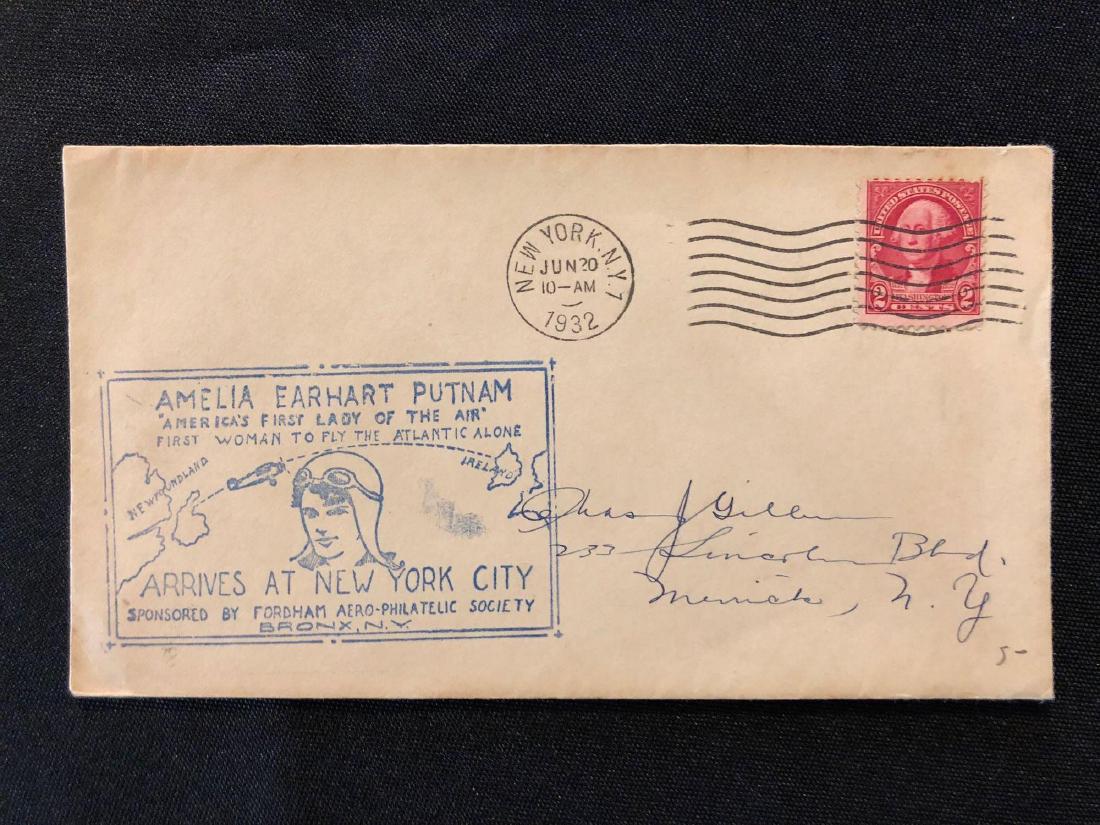 UNITED STATES POSTAGE
2 WASHINGTON 2
CENTS
NEW YORK, N.Y. 1
JUN 20
10-AM
1932
AMELIA EARHART PUTNAM
"AMERICA'S FIRST LADY OF THE AIR"
FIRST WOMAN TO FLY THE ATLANTIC ALONE
NEWFOUNDLAND
IRELAND
ARRIVES AT NEW YORK CITY
SPONSORED BY FORDHAM AERO-PHILATELIC SOCIETY
BRONX, N.Y.
Chas J
233 Lincoln Blvd.
Merrick, N. Y
5-